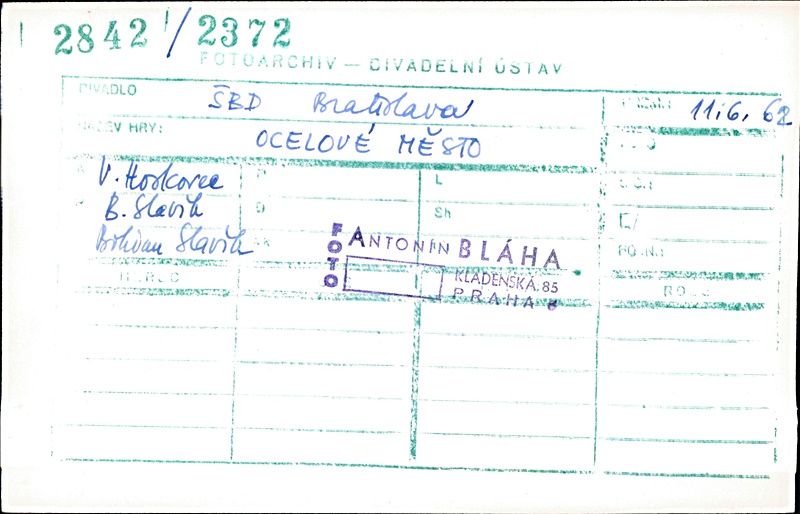 2842 / 2372
FOTOARCHIV — DIVADELNÍ ÚSTAV
DIVADLO ŠBD Bratislava 11.6. 62
NÁZEV HRY: OCELOVÉ MĚSTO
V. Hoskovec L
B. Slavík D Sh
Bohdan Slavík
FOTO ANTONÍN BLÁHA
KLADENSKÁ 85
PRAHA 6
HEREC ROLE